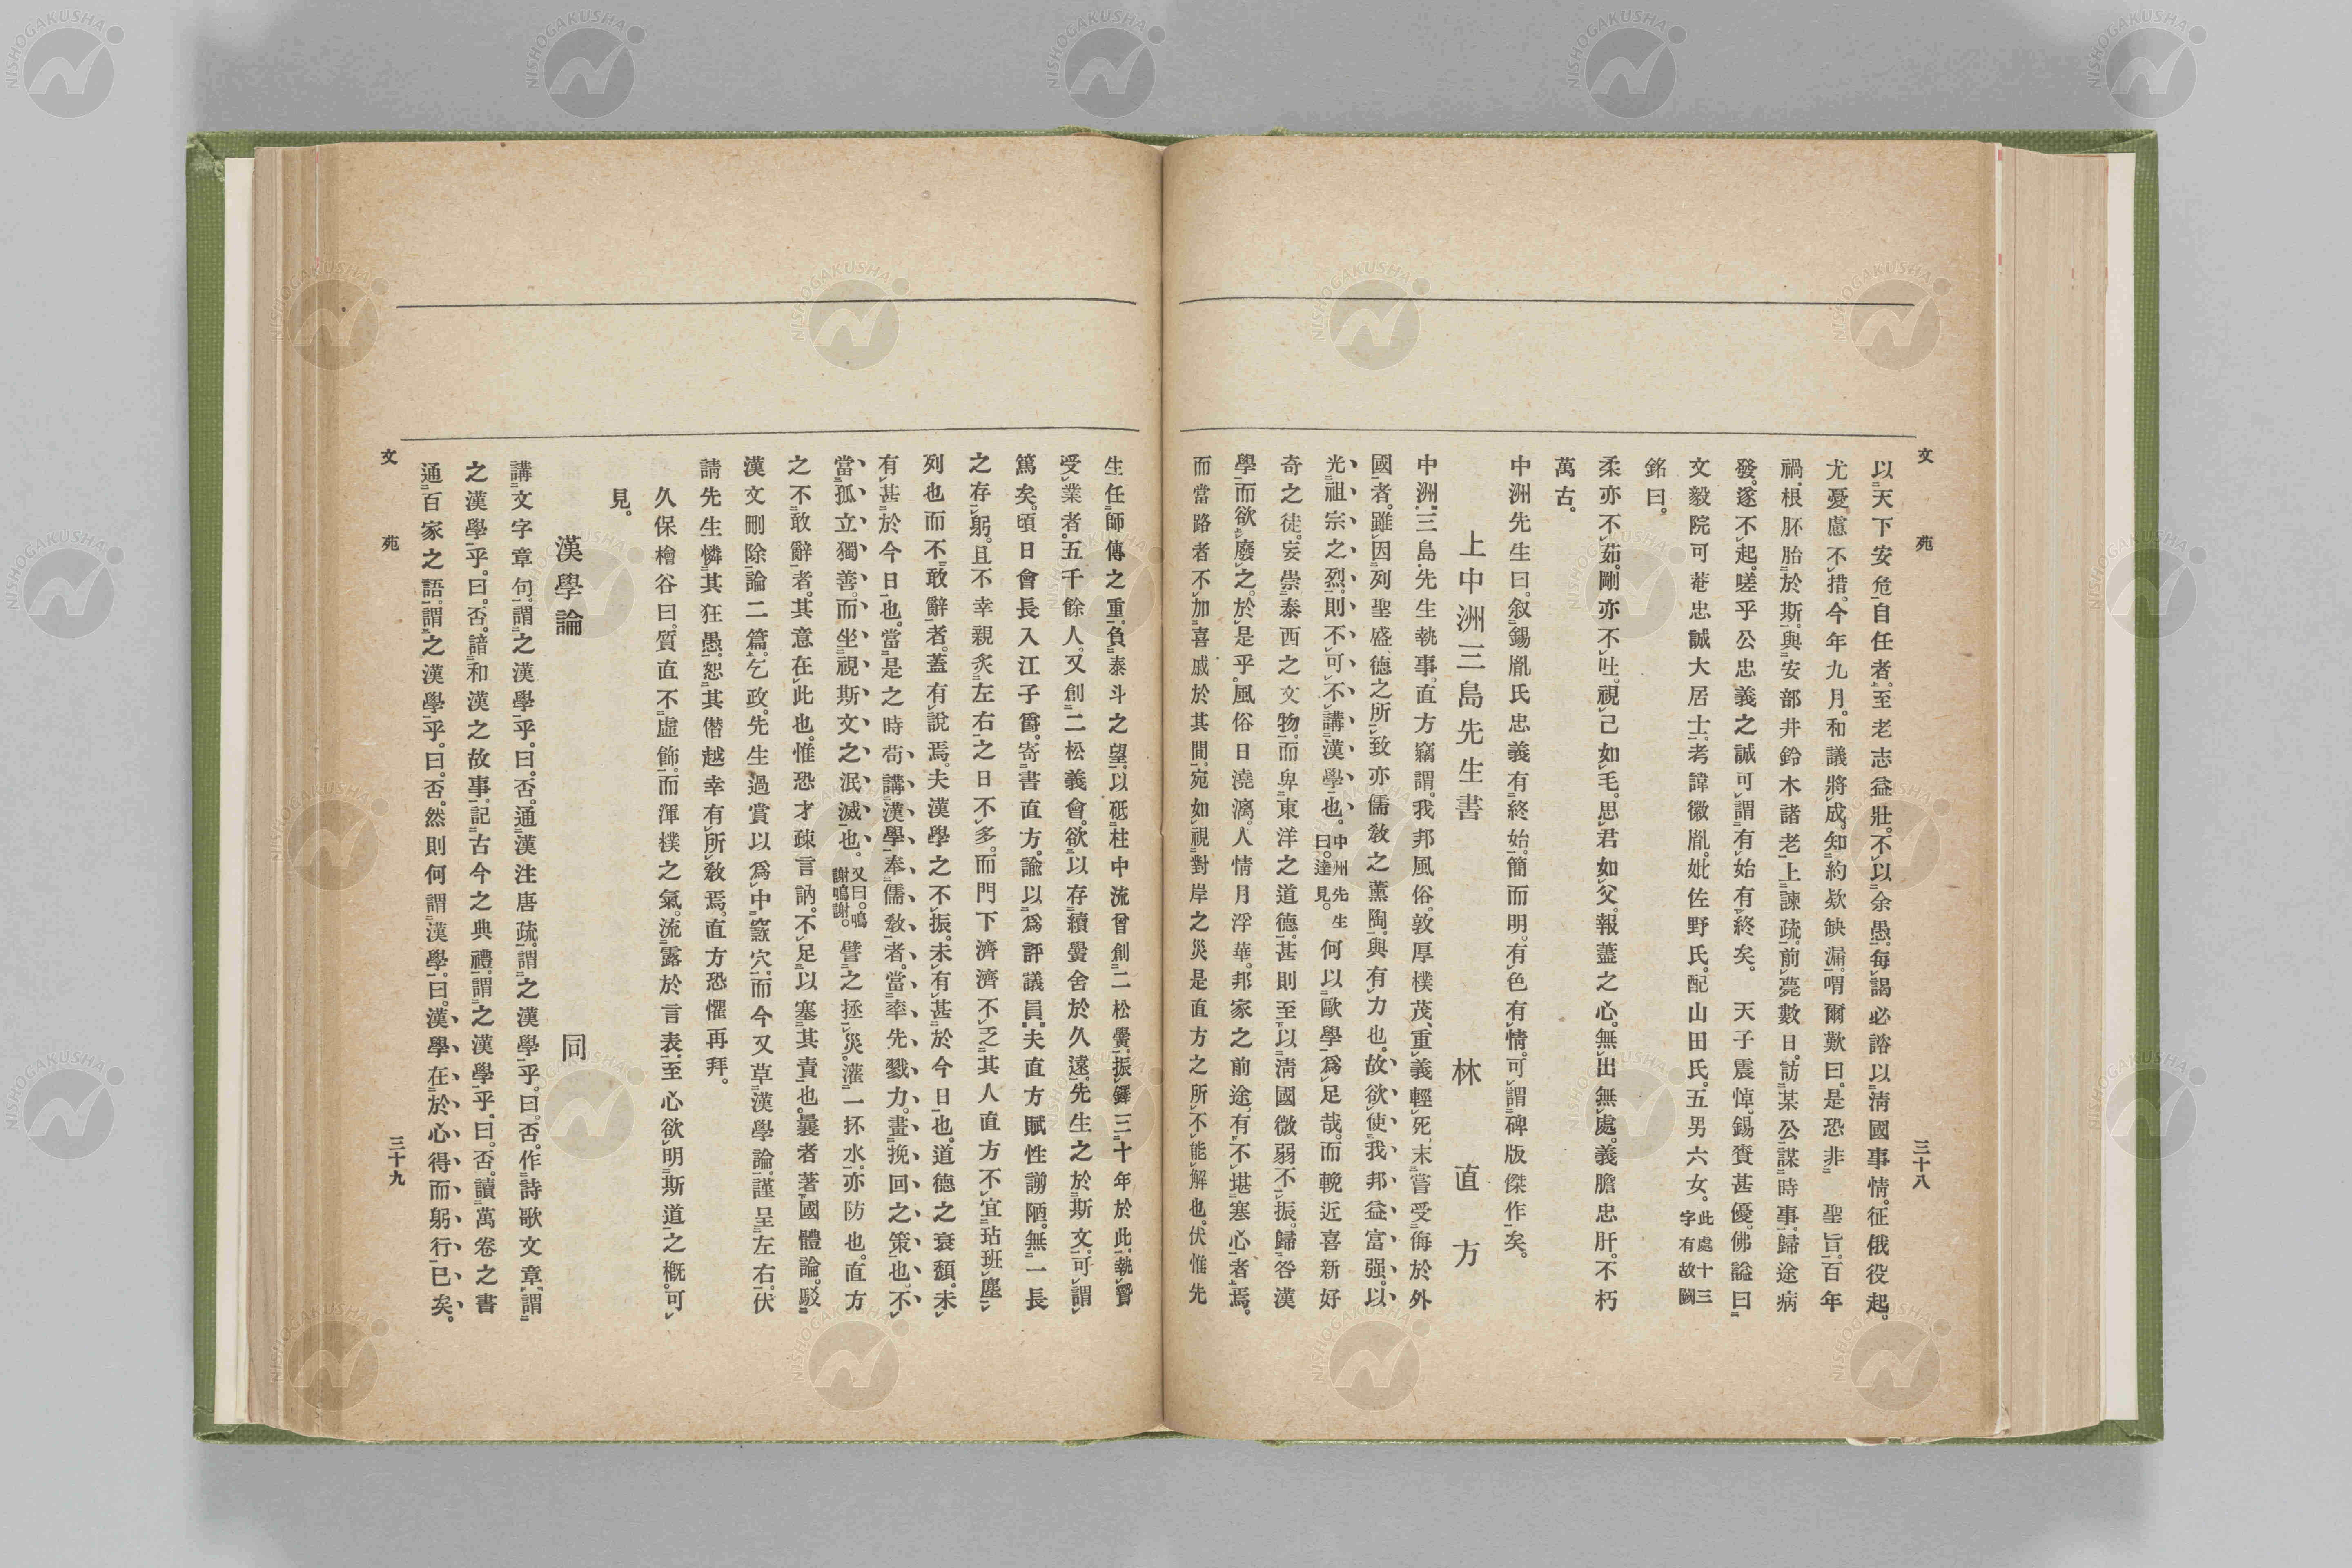 文 苑
三十八
以天下安危自任者。至老志益壯。不以余愚。每謁必諮以淸國事情。征俄役起。
尤憂慮不措。今年九月。和議將成。知約欵缺漏。喟爾歎曰。是恐非 聖旨。百年
禍根胚胎於斯。與安部井鈴木諸老上諫疏。前薨數日。訪某公謀時事。歸途病
發。遂不起。嗟乎公忠義之誠可謂有始有終矣。 天子震悼。錫賚甚優。佛謚曰
文毅院可菴忠誠大居士。考諱徽胤。妣佐野氏。配山田氏。五男六女。此處十三字有故闕
銘曰。
柔亦不茹。剛亦不吐。視己如毛。思君如父。報藎之心。無出無處。義膽忠肝。不朽
萬古。
中洲先生曰。叙錫胤氏忠義有終始。簡而明。有色有情。可謂碑版傑作矣。
上中洲三島先生書 林 直方
中洲三島先生執事。直方竊謂。我邦風俗。敦厚樸茂、重義輕死、末嘗受侮於外
國者。雖因列聖盛德之所致亦儒敎之薰陶。與有力也。故欲使我邦益富强。以
光祖宗之烈。則不可不講漢學也。中州先生曰。達見。何以歐學爲足哉。而輓近喜新好
奇之徒。妄崇泰西之文物。而卑東洋之道德。甚則至以淸國微弱不振。歸咎漢
學而欲廢之。於是乎。風俗日澆漓。人情月浮華。邦家之前途。有不堪寒心者焉。
而當路者不加喜戚於其間。宛如視對岸之災是直方之所不能解也。伏惟先
生任師傳之重。負泰斗之望。以砥柱中流曾創二松黌。振鐸三十年於此。執贄
受業者。五千餘人。又創二松義會。欲以存續黌舍於久遠。先生之於斯文。可謂
篤矣。頃日會長入江子爵。寄書直方。諭以爲評議員。夫直方賦性謭陋。無一長
之存躬。且不幸親炙左右之日不多。而門下濟濟不乏其人直方不宜玷班塵
列也而不敢辭者。蓋有說焉。夫漢學之不振。未有甚於今日也。道德之衰頽。未
有甚於今日也。當是之時苟講漢學奉儒敎者。當率先戮力。畫挽回之策也。不
當孤立獨善。而坐視斯文之泯滅也。又曰。鳴謝鳴謝。譬之拯災。灌一抔水。亦防也。直方
之不敢辭者。其意在此也。惟恐才疎言訥。不足以塞其責也。曩者著國體論。駁
漢文刪除論二篇。乞政。先生過賞以爲中窾穴。而今又草漢學論。謹呈左右。伏
請先生憐其狂愚。恕其僭越幸有所敎焉。直方恐懼再拜。
久保檜谷曰。質直不虛飾。而渾樸之氣。流露於言表。至心欲明斯道之槪。可
見。
漢學論 同
講文字章句。謂之漢學乎。曰。否。通漢注唐疏。謂之漢學乎。曰。否。作詩歌文章。謂
之漢學乎。曰。否。諳和漢之故事。記古今之典禮。謂之漢學乎。曰。否。讀萬卷之書
通百家之語。謂之漢學乎。曰。否。然則何謂漢學。曰。漢學在於心得而躬行已矣。
文 苑
三十九